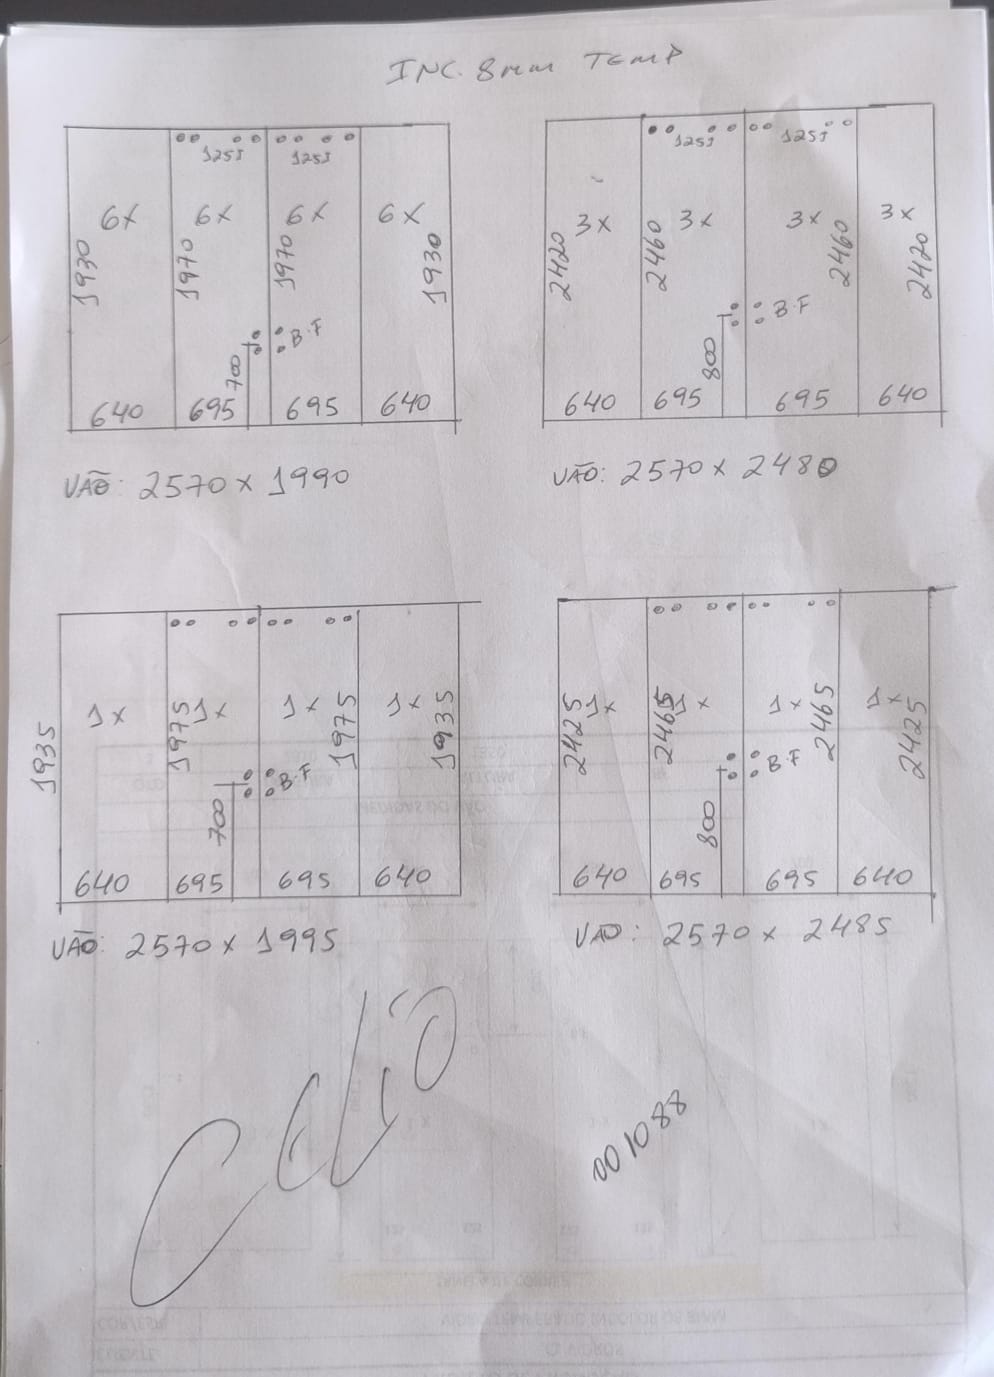 INC. 8mm TEMP
125J 125J
6x 6x 6x 6x
1930 1970 1970 1930
B.F
700
640 695 695 640
VÃO: 2570 x 1990
125J 125J
3x 3x 3x 3x
2420 2460 2460 2420
B.F
800
640 695 695 640
VÃO: 2570 x 2480
1x 1x 1x 1x
1935 1975 1975 1935
B.F
700
640 695 695 640
VÃO: 2570 x 1995
1x 1x 1x 1x
2425 2465 2465 2425
B.F
800
640 695 695 640
VÃO: 2570 x 2485
Célio
001088